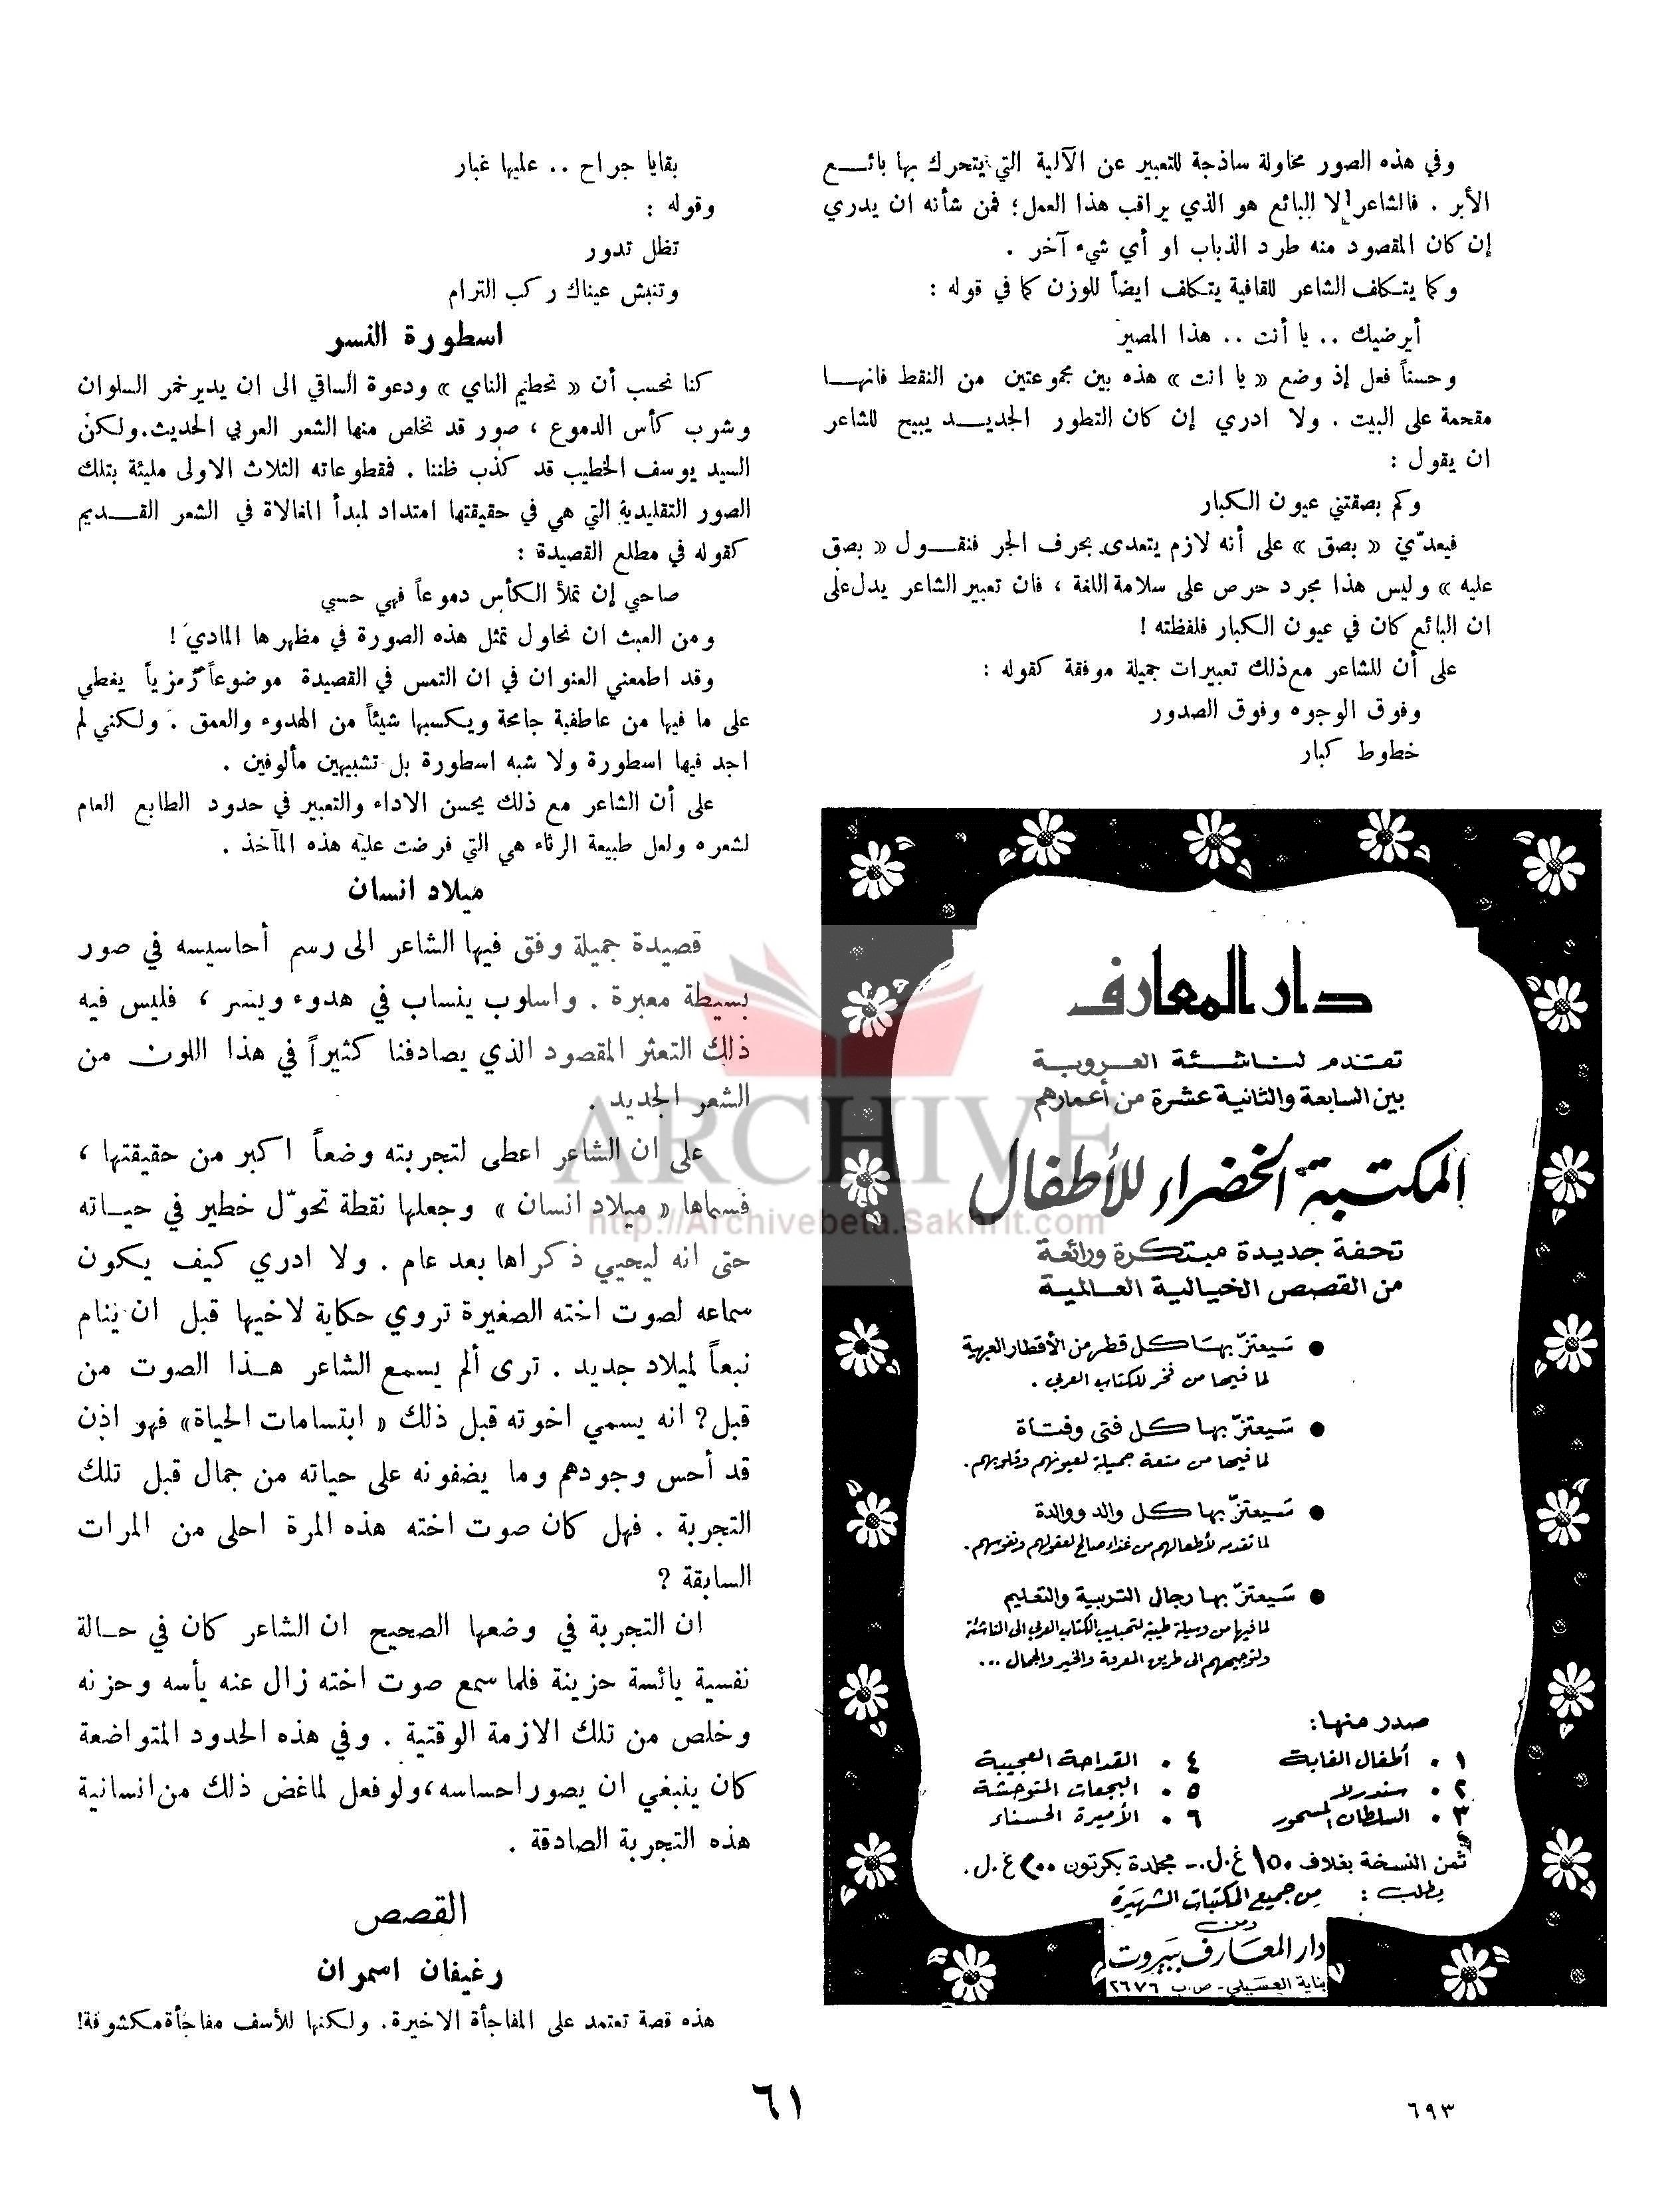 وفي هذه الصور محاولة ساذجة للتعبير عن الآلية التي يتحرك بها بائـــع
الأبر . فالشاعر لا البائع هو الذي يراقب هذا العمل؛ فمن شأنه ان يدري
إن كان المقصود منه طرد الذباب او أي شيء آخر .
وكما يتكلف الشاعر للقافية يتكلف ايضاً للوزن كما في قوله :
أيرضيك .. يا أنت .. هذا المصير
وحسناً فعل إذ وضع « يا انت » هذه بين مجموعتين من النقط فانهـا
مقحمة على البيت . ولا ادري إن كان التطور الجديـــد يبيح للشاعر
ان يقول :
وكم بصقتني عيون الكبار
فيعدّي « بصق » على أنه لازم يتعدى بحرف الجر فنقـــول « بصق
عليه » وليس هذا مجرد حرص على سلامة اللغة ، فان تعبير الشاعر يدل على
ان البائع كان في عيون الكبار فلفظته !
على أن للشاعر مع ذلك تعبيرات جميلة موفقة كقوله :
وفوق الوجوه وفوق الصدور
خطوط كبار
دار المعارف
تقدم لناشئة العروبة
بين السابعة والثانية عشرة من أعمارهم
المكتبة الخضراء للأطفال
تحفة جديدة مبتكرة ورائعة
من القصص الخيالية العالمية
● سيعتزّ بها كل قطر من الأقطار العربية
لما فيها من فخر للكتاب العربي .
● سيعتزّ بها كل فتى وفتاة
لما فيها من متعة جميلة لعيونهم وقلوبهم .
● سيعتزّ بها كل والد ووالدة
لما تقدمه لأطفالهم من غذاء صالح لعقولهم ونفوسهم .
● سيعتزّ بها رجال التربية والتعليم
لما فيها من وسيلة طيبة لتحبيب الكتاب العربي الى الناشئة
ولتوجيههم الى طريق المعرفة والخير والجمال ...
صدر منها:
١ . أطفال الغابة ٤ . القداحة العجيبة
٢ . سندرلا ٥ . البجعات المتوحشة
٣ . السلطان المسحور ٦ . الأميرة الحسناء
ثمن النسخة بغلاف ١٥٠ غ.ل. - مجلدة بكرتون ٢٠٠ غ.ل.
يطلب : من جميع المكتبات الشهيرة
ومن
دار المعارف ببيروت
بناية العسيلي - ص.ب ٢٦٧٦
بقايا جراح .. عليها غبار
وقوله :
تظل تدور
وتنبش عيناك ركب الترام
اسطورة النسر
كنا نحسب أن « تحطيم الناي » ودعوة الساقي الى ان يدير خمر السلوان
وشرب كأس الدموع ، صور قد تخلص منها الشعر العربي الحديث. ولكن
السيد يوسف الخطيب قد كذب ظننا . فمقطوعاته الثلاث الاولى مليئة بتلك
الصور التقليدية التي هي في حقيقتها امتداد لمبدأ المغالاة في الشعر القـــديم
كقوله في مطلع القصيدة :
صاحبي إن تملأ الكأس دموعاً فهي حسبي
ومن العبث ان نحاول تمثل هذه الصورة في مظهرها المادي !
وقد اطمعني العنوان في ان التمس في القصيدة موضوعاً رمزياً يغطي
على ما فيها من عاطفية جامحة ويكسبها شيئاً من الهدوء والعمق . ولكني لم
اجد فيها اسطورة ولا شبه اسطورة بل تشبيهين مألوفين .
على أن الشاعر مع ذلك يحسن الاداء والتعبير في حدود الطابع العام
لشعره ولعل طبيعة الرثاء هي التي فرضت عليه هذه المآخذ .
ميلاد انسان
قصيدة جميلة وفق فيها الشاعر الى رسم أحاسيسه في صور
بسيطة معبرة . واسلوب ينساب في هدوء ويسر ، فليس فيه
ذلك التعثر المقصود الذي يصادفنا كثيراً في هذا اللون من
الشعر الجديد .
على ان الشاعر اعطى لتجربته وضعاً اكبر من حقيقتها ،
فسماها « ميلاد انسان » وجعلها نقطة تحوّل خطير في حيـاته
حتى انه ليحيي ذكراها بعد عام . ولا ادري كيف يكون
سماعه لصوت اخته الصغيرة تروي حكاية لاخيها قبل ان ينام
نبعاً لميلاد جديد . ترى ألم يسمع الشاعر هـذا الصوت من
قبل؟ انه يسمي اخوته قبل ذلك « ابتسامات الحياة» فهو اذن
قد أحس وجودهم وما يضفونه على حياته من جمال قبل تلك
التجربة . فهل كان صوت اخته هذه المرة احلى من المرات
السابقة ؟
ان التجربة في وضعها الصحيح ان الشاعر كان في حـالة
نفسية يائسة حزينة فلما سمع صوت اخته زال عنه يأسه وحزنه
وخلص من تلك الازمة الوقتية . وفي هذه الحدود المتواضعة
كان ينبغي ان يصور احساسه، ولو فعل لما غض ذلك من انسانية
هذه التجربة الصادقة .
القصص
رغيفان اسمران
هذه قصة تعتمد على المفاجأة الاخيرة. ولكنها للأسف مفاجأة مكشوفة!
ARCHIVE
http://Archivebeta.Sakhrit.com
٦١
٦٩٣